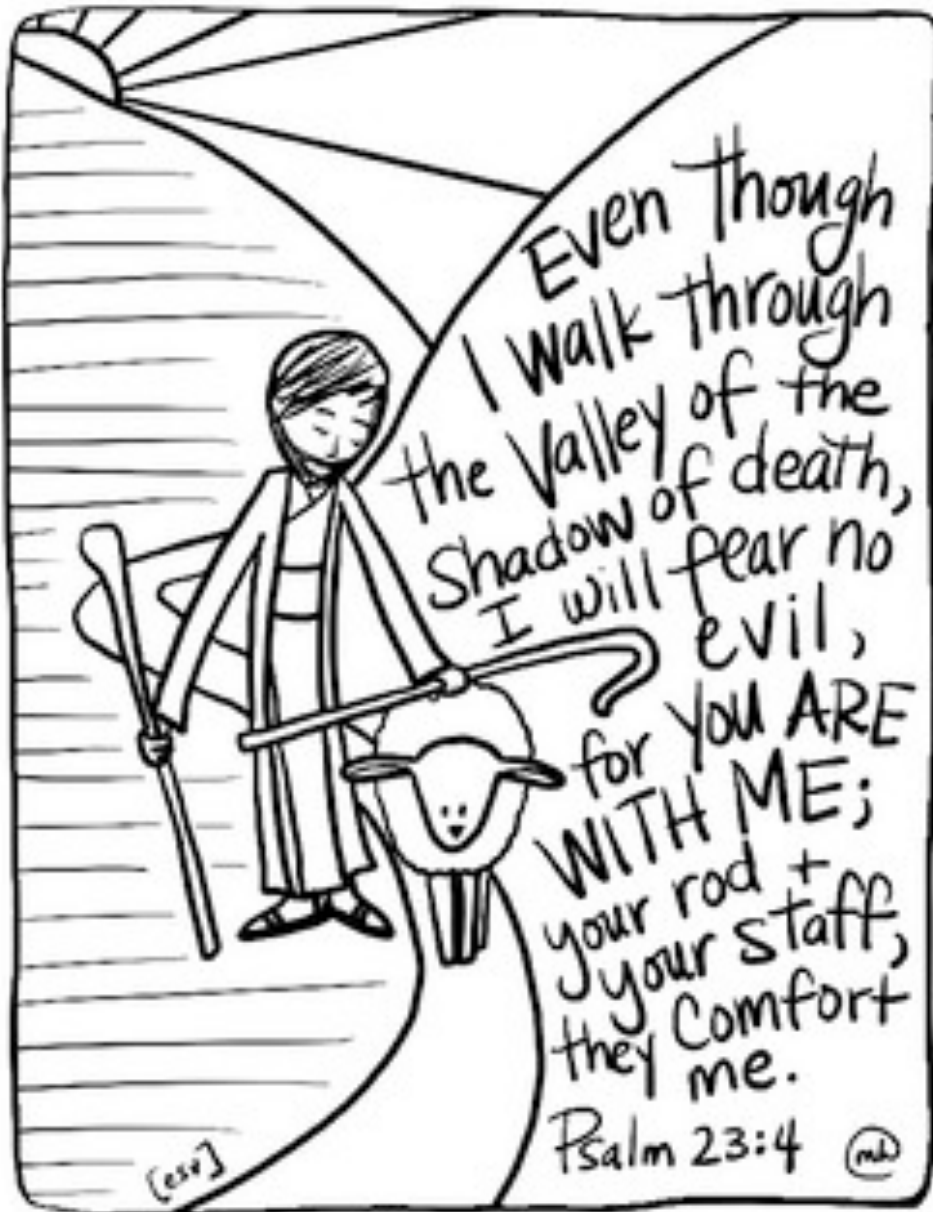 Even though
I walk through
the Valley of the
Shadow of death,
I will fear no
evil,
for you ARE
WITH ME;
your rod +
your staff,
they comfort
me.
Psalm 23:4
mh
[esv]